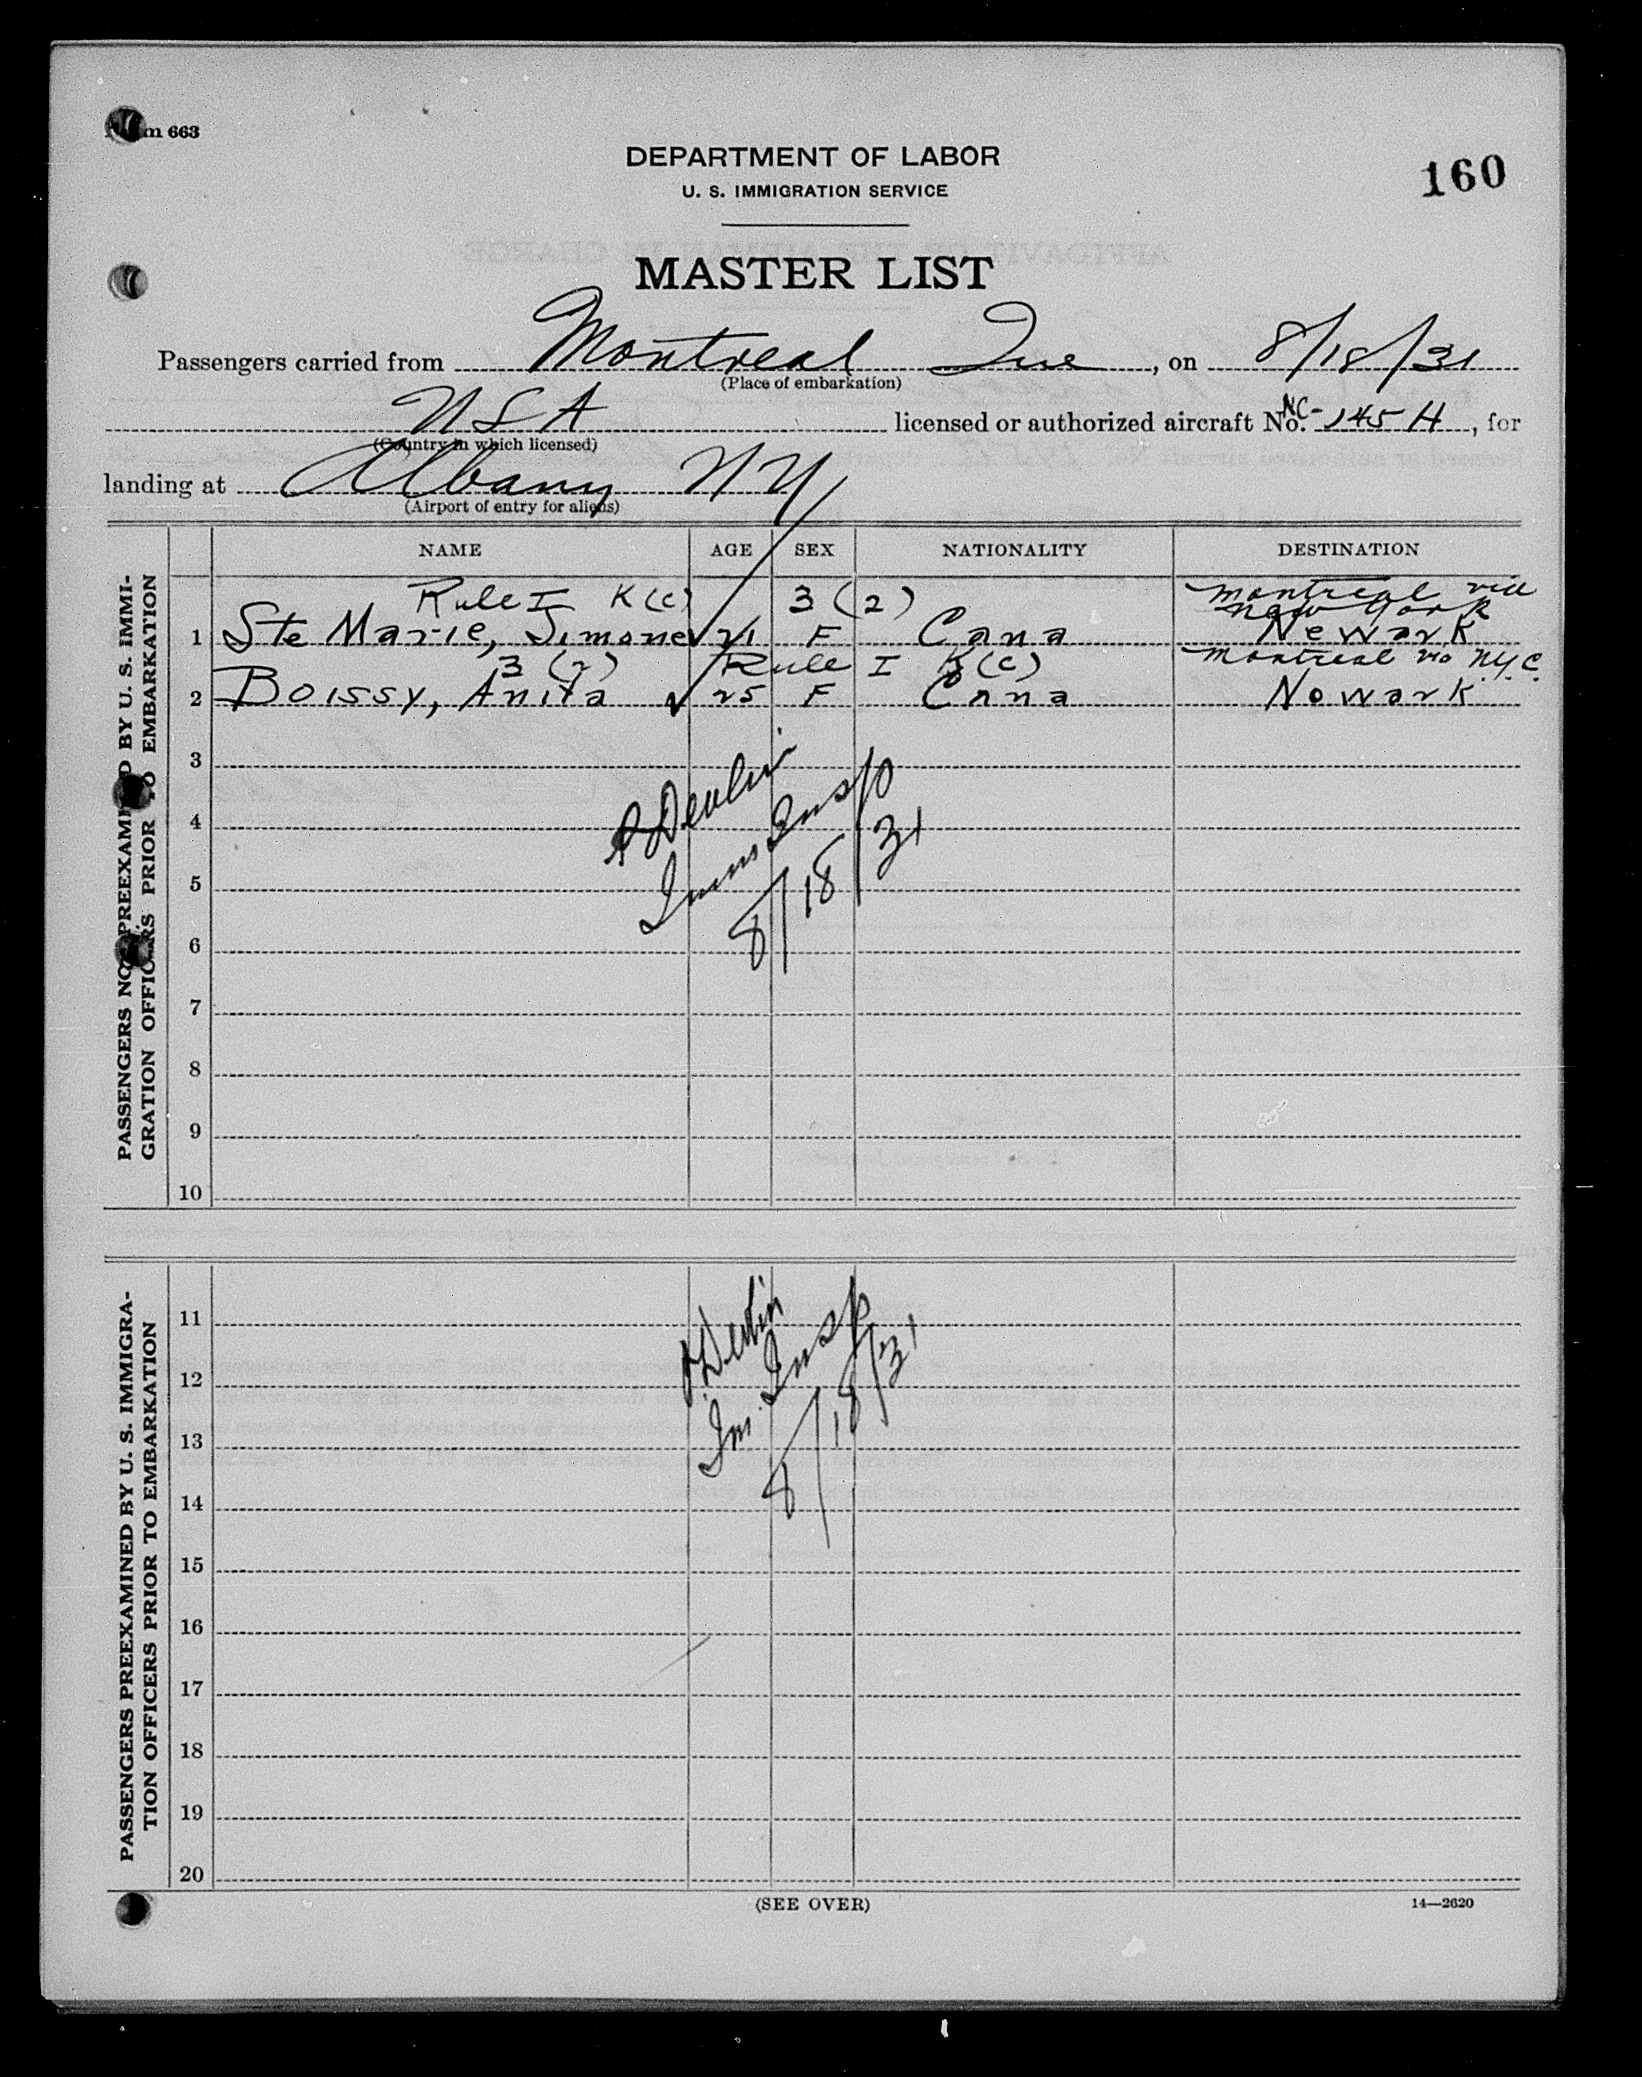 663
DEPARTMENT OF LABOR
U. S. IMMIGRATION SERVICE
160
MASTER LIST
Passengers carried from Montreal Que, on 8/18/31
(Place of embarkation)
USA licensed or authorized aircraft No. NC-145H, for
(Country in which licensed)
landing at Albany NY
(Airport of entry for aliens)
NAME AGE SEX NATIONALITY DESTINATION
Rule I K(c) 3(2) Montreal via
New York
1 Ste Marie, Simone ✓ 21 F Cana Newark
3(2) Rule I K(c) Montreal via N.Y.C.
2 Boissy, Anita ✓ 25 F Cana Newark
3
4
5
6
7
8
9
10
Devlin
Imm Insp
8/18/31
PASSENGERS NOT PREEXAMINED BY U. S. IMMI-
GRATION OFFICERS PRIOR TO EMBARKATION
11
12
13
14
15
16
17
18
19
20
Devlin
Im. Insp
8/18/31
PASSENGERS PREEXAMINED BY U. S. IMMIGRA-
TION OFFICERS PRIOR TO EMBARKATION
(SEE OVER)
14—2620